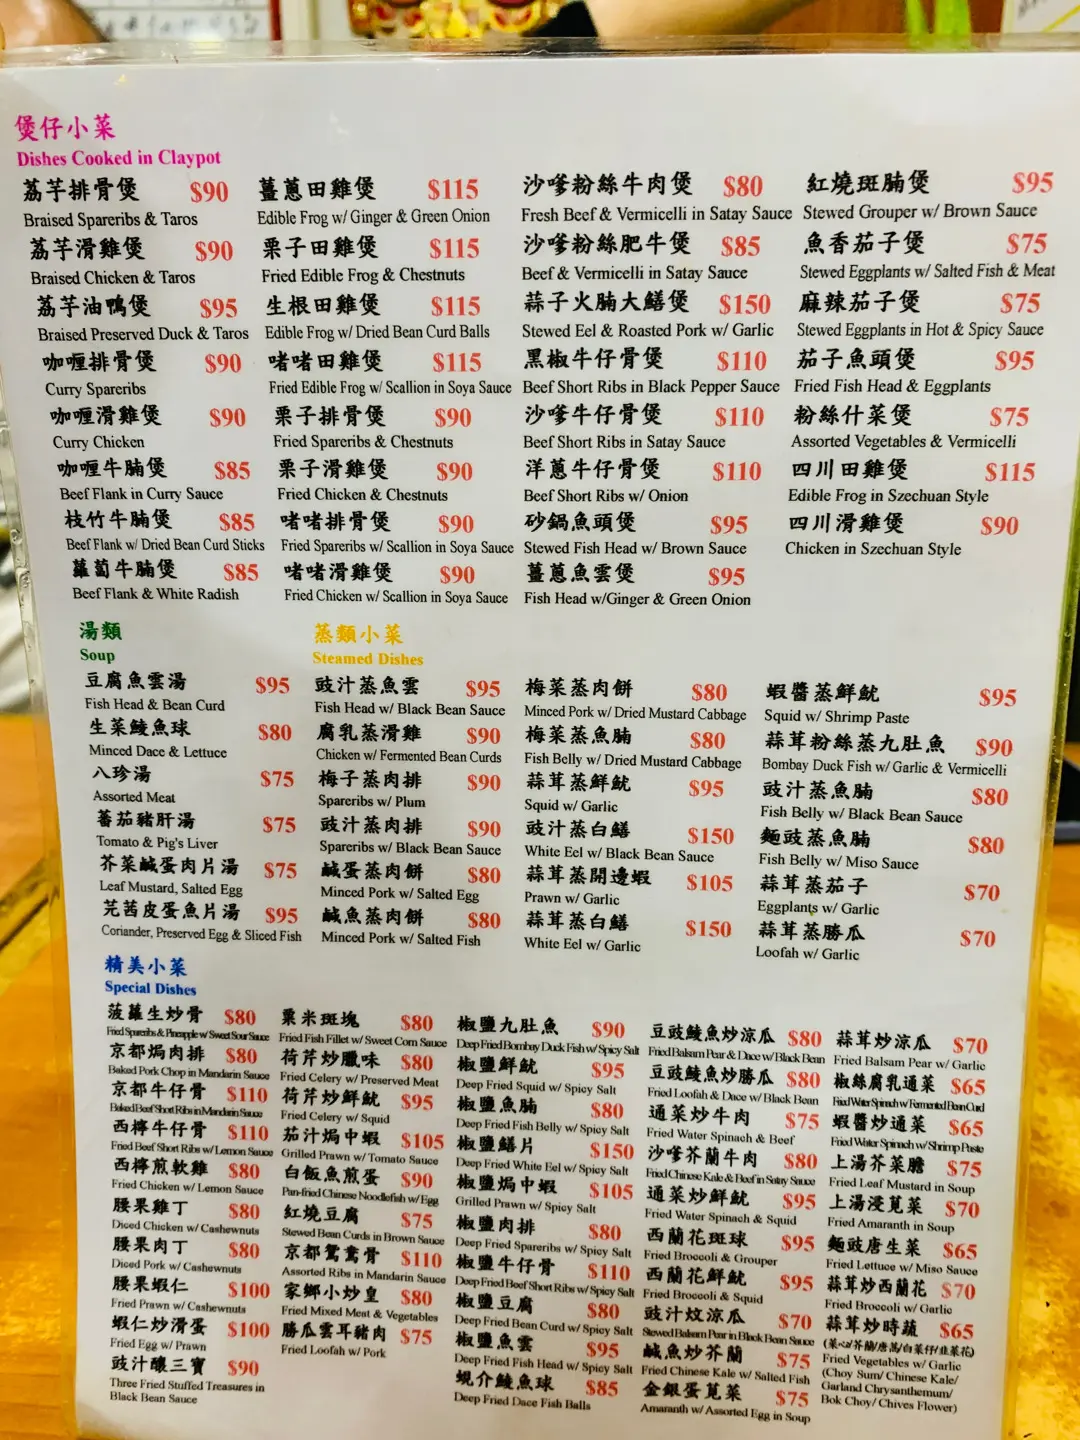 煲仔小菜
Dishes Cooked in Claypot
荔芋排骨煲 $90
Braised Spareribs & Taros
荔芋滑雞煲 $90
Braised Chicken & Taros
荔芋油鴨煲 $95
Braised Preserved Duck & Taros
咖喱排骨煲 $90
Curry Spareribs
咖喱滑雞煲 $90
Curry Chicken
咖喱牛腩煲 $85
Beef Flank in Curry Sauce
枝竹牛腩煲 $85
Beef Flank w/ Dried Bean Curd Sticks
蘿蔔牛腩煲 $85
Beef Flank & White Radish
薑蔥田雞煲 $115
Edible Frog w/ Ginger & Green Onion
栗子田雞煲 $115
Fried Edible Frog & Chestnuts
生根田雞煲 $115
Edible Frog w/ Dried Bean Curd Balls
啫啫田雞煲 $115
Fried Edible Frog w/ Scallion in Soya Sauce
栗子排骨煲 $90
Fried Spareribs & Chestnuts
栗子滑雞煲 $90
Fried Chicken & Chestnuts
啫啫排骨煲 $90
Fried Spareribs w/ Scallion in Soya Sauce
啫啫滑雞煲 $90
Fried Chicken w/ Scallion in Soya Sauce
沙嗲粉絲牛肉煲 $80
Fresh Beef & Vermicelli in Satay Sauce
沙嗲粉絲肥牛煲 $85
Beef & Vermicelli in Satay Sauce
蒜子火腩大鱔煲 $150
Stewed Eel & Roasted Pork w/ Garlic
黑椒牛仔骨煲 $110
Beef Short Ribs in Black Pepper Sauce
沙嗲牛仔骨煲 $110
Beef Short Ribs in Satay Sauce
洋蔥牛仔骨煲 $110
Beef Short Ribs w/ Onion
砂鍋魚頭煲 $95
Stewed Fish Head w/ Brown Sauce
薑蔥魚雲煲 $95
Fish Head w/Ginger & Green Onion
紅燒斑腩煲 $95
Stewed Grouper w/ Brown Sauce
魚香茄子煲 $75
Stewed Eggplants w/ Salted Fish & Meat
麻辣茄子煲 $75
Stewed Eggplants in Hot & Spicy Sauce
茄子魚頭煲 $95
Fried Fish Head & Eggplants
粉絲什菜煲 $75
Assorted Vegetables & Vermicelli
四川田雞煲 $115
Edible Frog in Szechuan Style
四川滑雞煲 $90
Chicken in Szechuan Style
湯類
Soup
豆腐魚雲湯 $95
Fish Head & Bean Curd
生菜鯪魚球 $80
Minced Dace & Lettuce
八珍湯 $75
Assorted Meat
蕃茄豬肝湯 $75
Tomato & Pig's Liver
芥菜鹹蛋肉片湯 $75
Leaf Mustard, Salted Egg
芫茜皮蛋魚片湯 $95
Coriander, Preserved Egg & Sliced Fish
蒸類小菜
Steamed Dishes
豉汁蒸魚雲 $95
Fish Head w/ Black Bean Sauce
腐乳蒸滑雞 $90
Chicken w/ Fermented Bean Curds
梅子蒸肉排 $90
Spareribs w/ Plum
豉汁蒸肉排 $90
Spareribs w/ Black Bean Sauce
鹹蛋蒸肉餅 $80
Minced Pork w/ Salted Egg
鹹魚蒸肉餅 $80
Minced Pork w/ Salted Fish
梅菜蒸肉餅 $80
Minced Pork w/ Dried Mustard Cabbage
梅菜蒸魚腩 $80
Fish Belly w/ Dried Mustard Cabbage
蒜茸蒸鮮魷 $95
Squid w/ Garlic
豉汁蒸白鱔 $150
White Eel w/ Black Bean Sauce
蒜茸蒸開邊蝦 $105
Prawn w/ Garlic
蒜茸蒸白鱔 $150
White Eel w/ Garlic
蝦醬蒸鮮魷 $95
Squid w/ Shrimp Paste
蒜茸粉絲蒸九肚魚 $90
Bombay Duck Fish w/ Garlic & Vermicelli
豉汁蒸魚腩 $80
Fish Belly w/ Black Bean Sauce
麵豉蒸魚腩 $80
Fish Belly w/ Miso Sauce
蒜茸蒸茄子 $70
Eggplants w/ Garlic
蒜茸蒸勝瓜 $70
Loofah w/ Garlic
精美小菜
Special Dishes
菠蘿生炒骨 $80
Fried Spareribs & Pineapple w/ Sweet Sour Sauce
京都焗肉排 $80
Baked Pork Chop in Mandarin Sauce
京都牛仔骨 $110
Baked Beef Short Ribs in Mandarin Sauce
西檸牛仔骨 $110
Fried Beef Short Ribs w/ Lemon Sauce
西檸煎軟雞 $80
Fried Chicken w/ Lemon Sauce
腰果雞丁 $80
Diced Chicken w/ Cashewnuts
腰果肉丁 $80
Diced Pork w/ Cashewnuts
腰果蝦仁 $100
Fried Prawn w/ Cashewnuts
蝦仁炒滑蛋 $100
Fried Egg w/ Prawn
豉汁釀三寶 $90
Three Fried Stuffed Treasures in
Black Bean Sauce
粟米斑塊 $80
Fried Fish Fillet w/ Sweet Corn Sauce
荷芹炒臘味 $80
Fried Celery w/ Preserved Meat
荷芹炒鮮魷 $95
Fried Celery w/ Squid
茄汁焗中蝦 $105
Grilled Prawn w/ Tomato Sauce
白飯魚煎蛋 $90
Pan-fried Chinese Noodlefish w/ Egg
紅燒豆腐 $75
Stewed Bean Curds in Brown Sauce
京都鴛鴦骨 $110
Assorted Ribs in Mandarin Sauce
家鄉小炒皇 $80
Fried Mixed Meat & Vegetables
勝瓜雲耳豬肉 $75
Fried Loofah w/ Pork
椒鹽九肚魚 $90
Deep Fried Bombay Duck Fish w/ Spicy Salt
椒鹽鮮魷 $95
Deep Fried Squid w/ Spicy Salt
椒鹽魚腩 $80
Deep Fried Fish Belly w/ Spicy Salt
椒鹽鱔片 $150
Deep Fried White Eel w/ Spicy Salt
椒鹽焗中蝦 $105
Grilled Prawn w/ Spicy Salt
椒鹽肉排 $80
Deep Fried Spareribs w/ Spicy Salt
椒鹽牛仔骨 $110
Deep Fried Beef Short Ribs w/ Spicy Salt
椒鹽豆腐 $80
Deep Fried Bean Curd w/ Spicy Salt
椒鹽魚雲 $95
Deep Fried Fish Head w/ Spicy Salt
蜆介鯪魚球 $85
Deep Fried Dace Fish Balls
豆豉鯪魚炒涼瓜 $80
Fried Balsam Pear & Dace w/ Black Bean
豆豉鯪魚炒勝瓜 $80
Fried Loofah & Dace w/ Black Bean
通菜炒牛肉 $75
Fried Water Spinach & Beef
沙嗲芥蘭牛肉 $80
Fried Chinese Kale & Beef in Satay Sauce
通菜炒鮮魷 $95
Fried Water Spinach & Squid
西蘭花斑球 $95
Fried Broccoli & Grouper
西蘭花鮮魷 $95
Fried Broccoli & Squid
豉汁炆涼瓜 $70
Stewed Balsam Pear in Black Bean Sauce
鹹魚炒芥蘭 $75
Fried Chinese Kale w/ Salted Fish
金銀蛋莧菜 $75
Amaranth w/ Assorted Egg in Soup
蒜茸炒涼瓜 $70
Fried Balsam Pear w/ Garlic
椒絲腐乳通菜 $65
Fried Water Spinach w/ Fermented Bean Curd
蝦醬炒通菜 $65
Fried Water Spinach w/ Shrimp Paste
上湯芥菜膽 $75
Fried Leaf Mustard in Soup
上湯浸莧菜 $70
Fried Amaranth in Soup
麵豉唐生菜 $65
Fried Lettuce w/ Miso Sauce
蒜茸炒西蘭花 $70
Fried Broccoli w/ Garlic
蒜茸炒時蔬 $65
(菜心/芥蘭/唐蒿/白菜仔/韭菜花)
Fried Vegetables w/ Garlic
(Choy Sum/ Chinese Kale/
Garland Chrysanthemum/
Bok Choy/ Chives Flower)